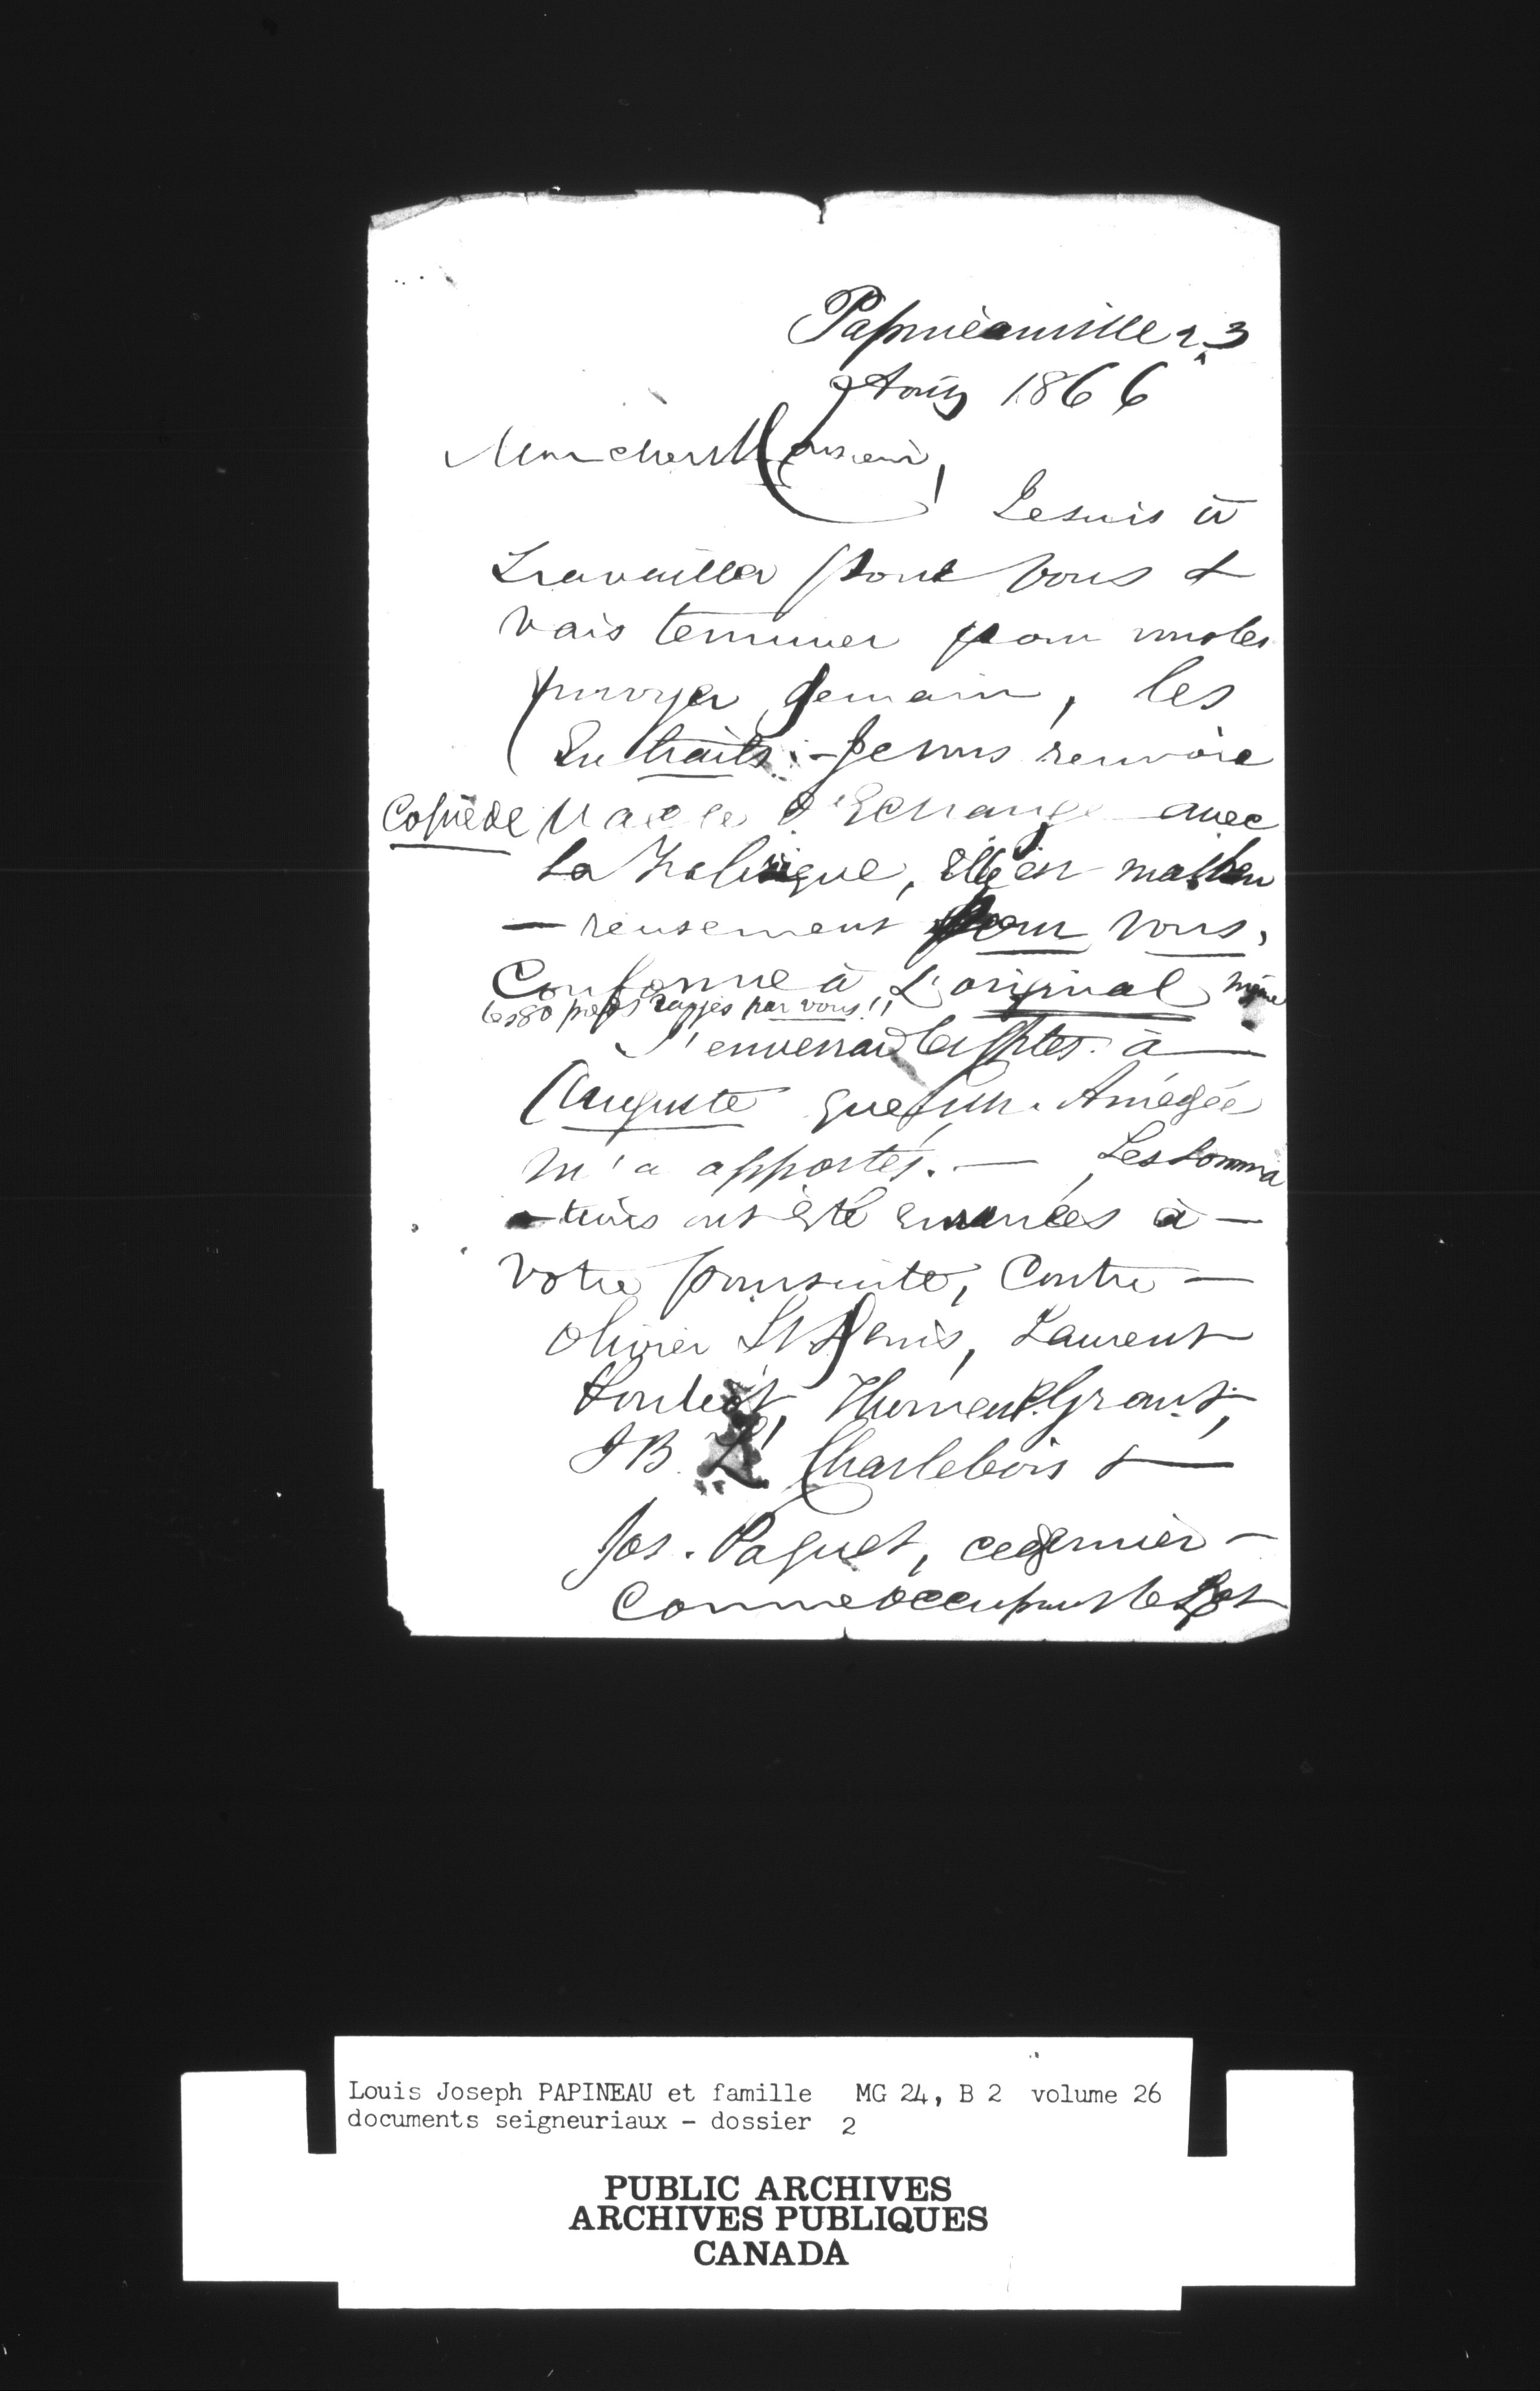 Papineauville 23
Août 1866
Mon cher Monsieur,
Je suis à
travailler pour vous &
vais terminer pour vous les
envoyer demain, les
Extraits. - Je vous renvoie
Copie de l'acte d'Echange avec
la Fabrique, Elle est malheu
- reusement pour vous,
Conforme à L'original même
les 80 pieds rayés par vous!!
J'enverrai les à
Auguste que Mr. Amédée
m'a apportés. — Les Somma
- tions ont été à —
votre poursuite, Contre —
Olivier St Denis, Laurent
Grant,
J B Charlebois &
Jos. Paquet, ce dernier —
Comme occupant le Lot
Louis Joseph PAPINEAU et famille MG 24, B 2 volume 26
documents seigneuriaux - dossier 2
PUBLIC ARCHIVES
ARCHIVES PUBLIQUES
CANADA